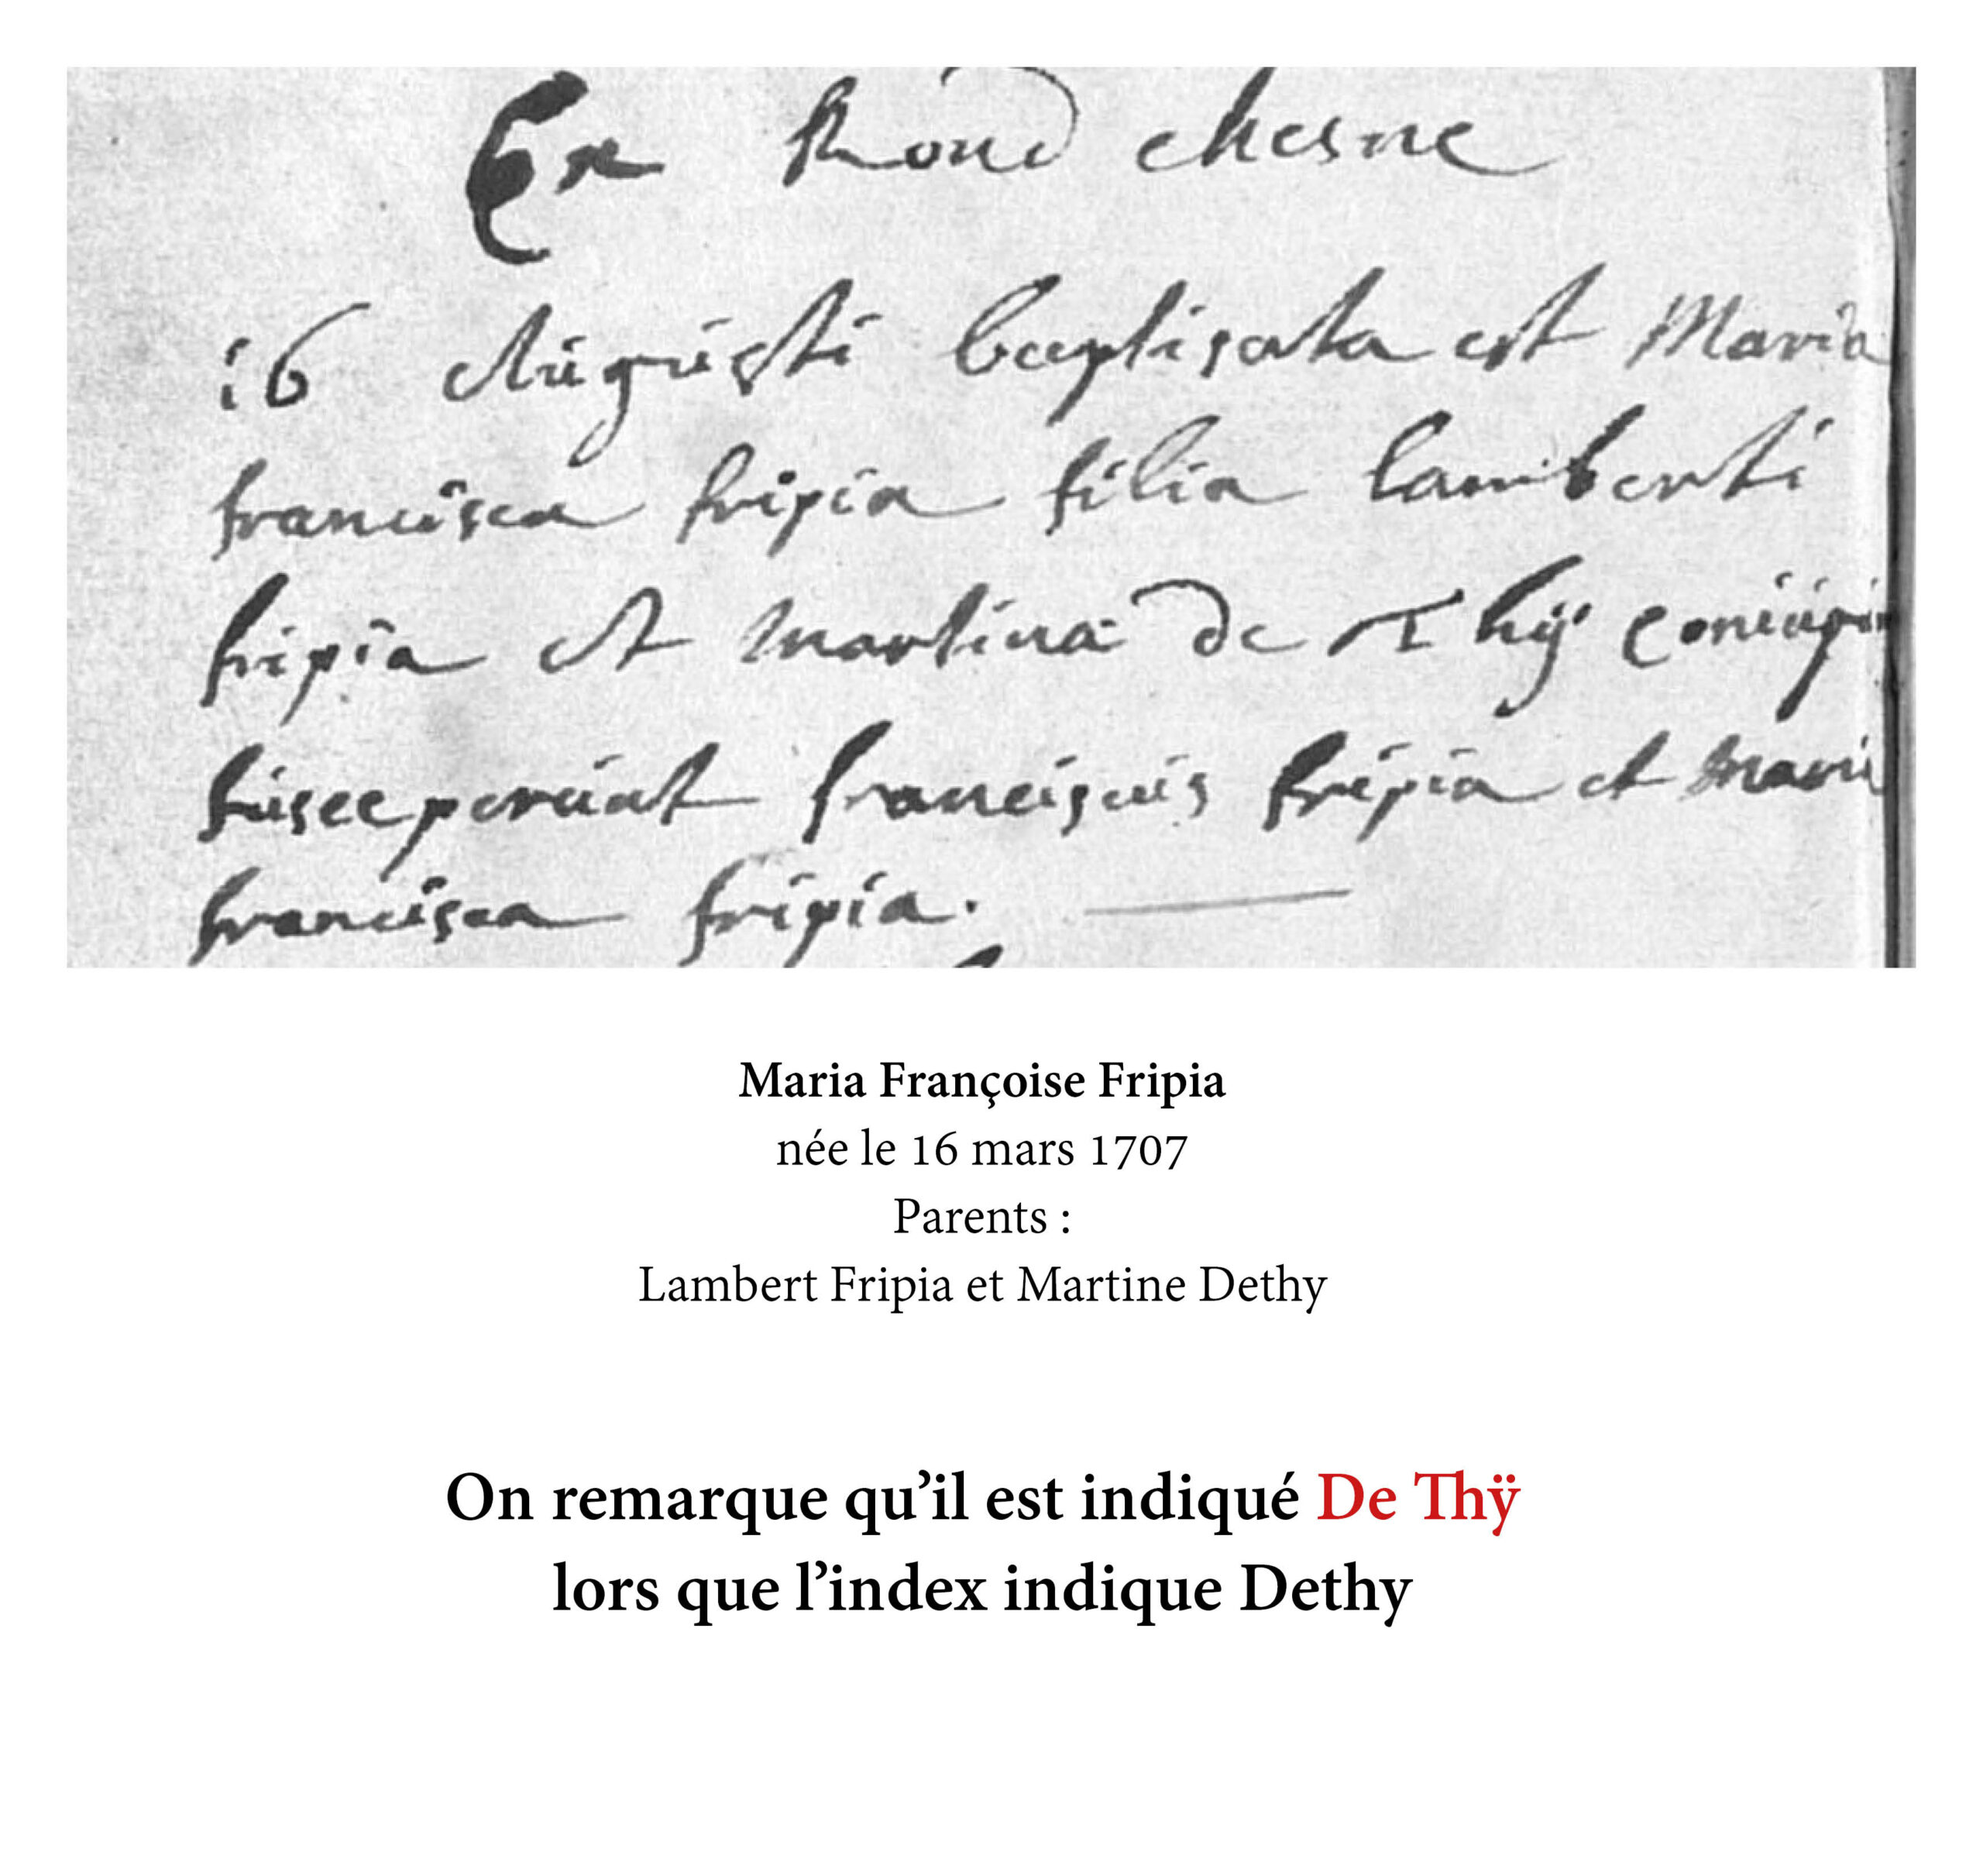 Ex Rond chesne
16 Augusti baptisata est Maria
francisca fripia filia lamberti
fripia et martina de Thÿ
susceperunt franciscus fripia et
francisca fripia.
Maria Françoise Fripia
née le 16 mars 1707
Parents :
Lambert Fripia et Martine Dethy
On remarque qu’il est indiqué De Thÿ
lors que l’index indique Dethy